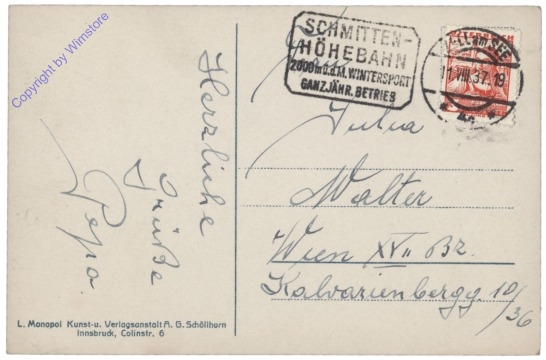 Copyright by Wimstore
SCHMITTEN-
HÖHEBAHN
2000m ü.d.M. WINTERSPORT
GANZJÄHR. BETRIEB
ZELL AM SEE
11.VIII.37.19
Herzliche
Grüße
Pepa
Frau
Julia
Walter
Wien XVII Bz.
Kalvarienbergg. 10/36
L. Monopol Kunst-u. Verlagsanstalt A. G. Schöllhorn
Innsbruck, Colinstr. 6